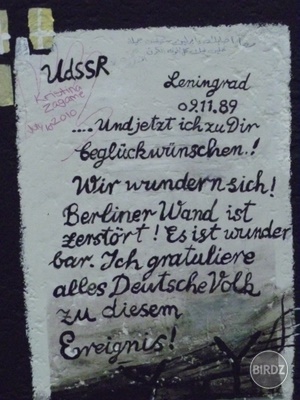 UdSSR
Leningrad
09.11.89
Kristina
Zagame
July 2010
.... Und jetzt ich zu Dir
beglückwünschen.!
Wir wundern sich!
Berliner Wand ist
zerstört! Es ist wunder
bar. Ich gratuliere
alles Deutsche Volk
zu diesem
Ereignis!
BIRDZ